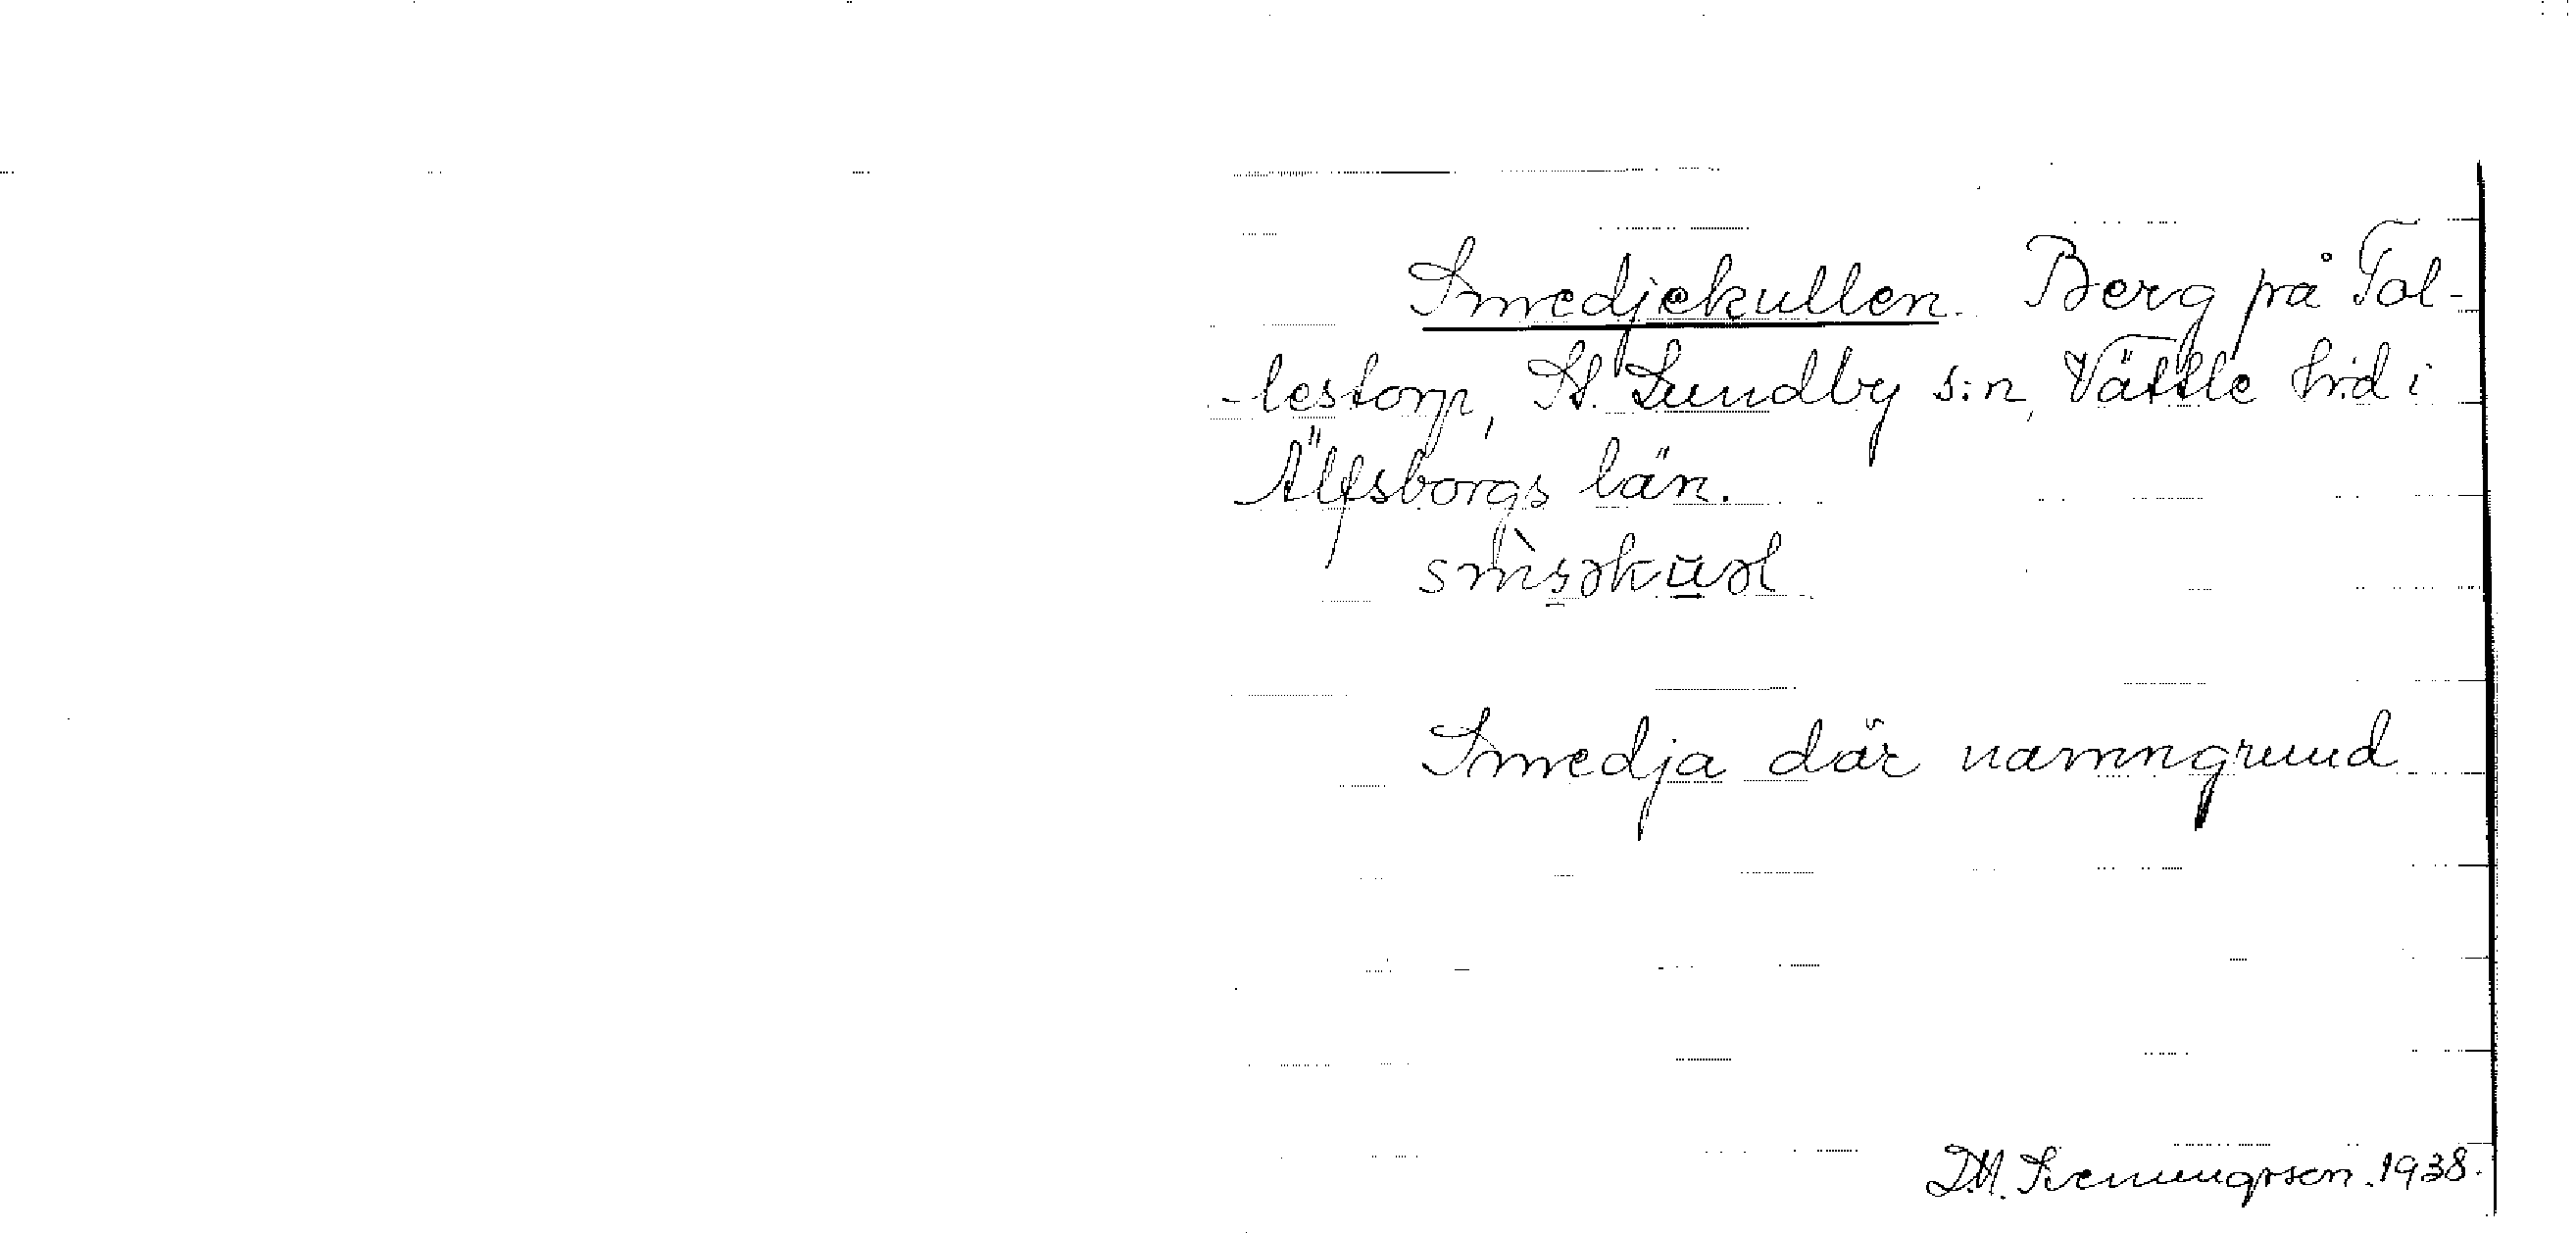 Smedjekullen. Berg på Tol-
-lestorp, St. Lundby s:n, Vättle h:d i
Älfsborgs län.
Smedja där namngrund
D.M. 1938.